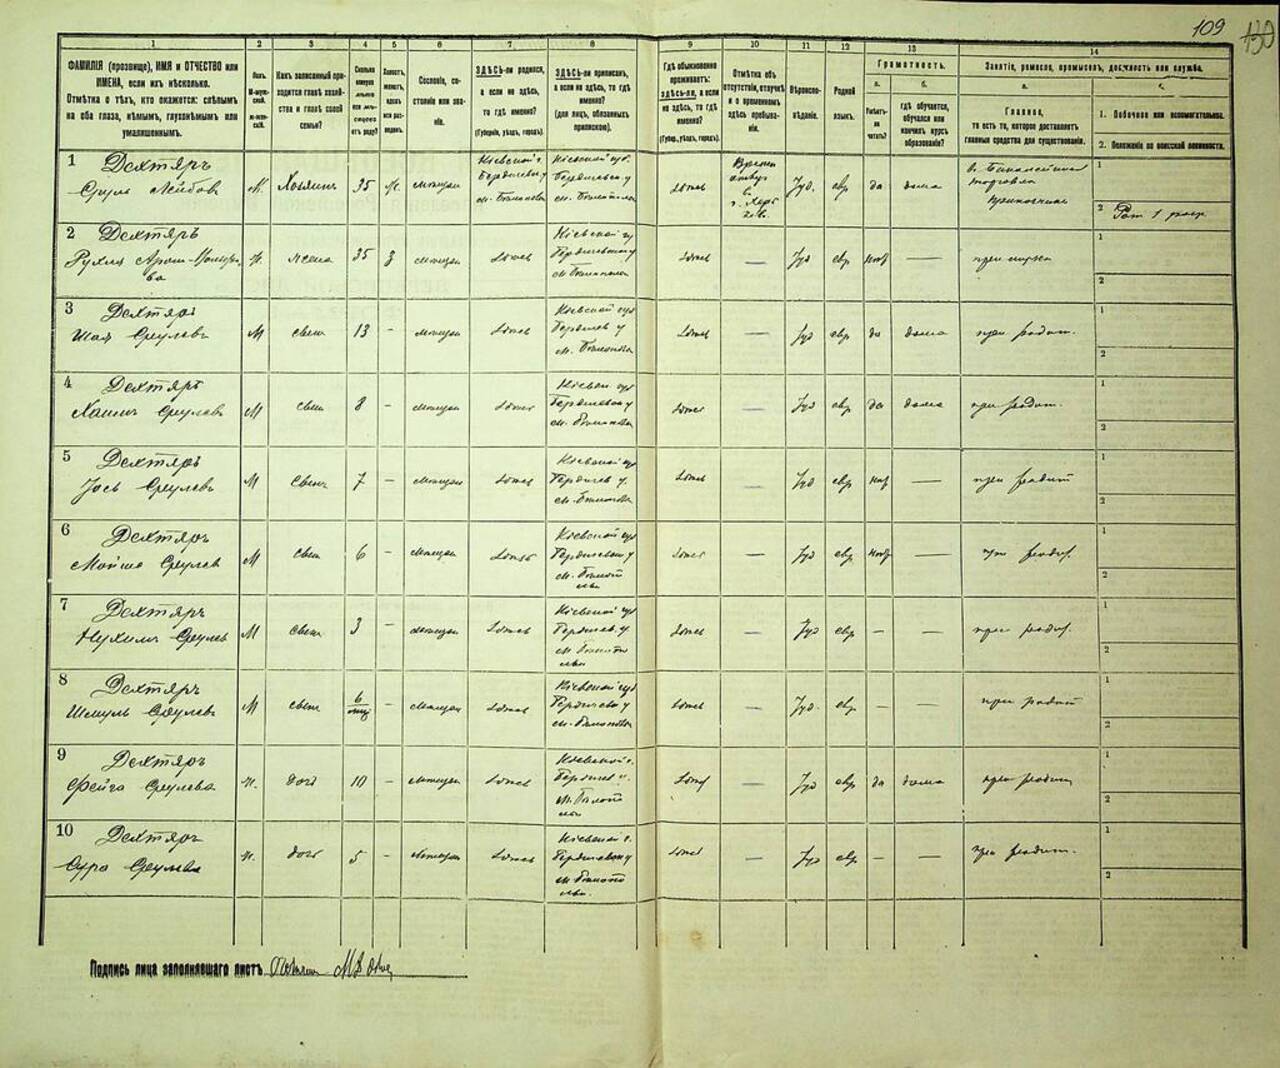 109
130
1
2
3
4
5
6
7
8
9
10
11
12
13
14
ФАМИЛІЯ (прозвище), ИМЯ и ОТЧЕСТВО или
ИМЕНА, если ихъ нѣсколько.
Отмѣтка о тѣхъ, кто окажется: слѣпымъ
на оба глаза, нѣмымъ, глухонѣмымъ или
умалишеннымъ.
Полъ.
М-муж-
ской.
ж-жен-
скій.
Какъ записанный при-
ходится главѣ хозяй-
ства и главѣ своей
семьи?
Сколько
минуло
лѣтъ
или мѣ-
сяцевъ
отъ роду?
Холостъ,
женатъ,
вдовъ
или раз-
веденъ.
Сословіе, со-
стояніе или зва-
ніе.
ЗДѢСЬ-ли родился,
а если не здѣсь,
то гдѣ именно?
(Губернія, уѣздъ, городъ).
ЗДѢСЬ-ли приписанъ,
а если не здѣсь, то гдѣ
именно?
(для лицъ, обязанныхъ
припискою).
Гдѣ обыкновенно
проживаетъ:
здѣсь-ли, а если
не здѣсь, то гдѣ
именно?
(Губер., уѣздъ, городъ).
Отмѣтка объ
отсутствіи, отлучкѣ
и о временномъ
здѣсь пребыва-
ніи.
Вѣроиспо-
вѣданіе.
Родной
языкъ.
Грамотность.
а.
Умѣетъ-
ли
читать?
б.
гдѣ обучается,
обучался или
кончилъ курсъ
образованія?
Занятіе, ремесло, промыселъ, должность или служба.
а.
Главное,
то есть то, которое доставляетъ
главныя средства для существованія.
1. Побочное или вспомогательное.
2. Положеніе по воинской повинности.
1 Дехтяръ
Сруль Лейбовъ
М. Хозяинъ 35 ж. мѣщан
Кіевской г.
Бердичев у
Кіевской губ.
Бердичевск. у
здѣсь
Іуд. евр да дома
торговля
1
2
2 Дехтяръ
Рухля
ж. жена 35 з мѣщан здѣсь
Кіевской гу
Бердичевск у
здѣсь — Іуд евр нѣт — при мужѣ
1
2
3 Дехтяръ
Шая Срулевъ
М сынъ 13 - мѣщан здѣсь
Кіевской гу
Бердичев у
здѣсь — Іуд евр да дома при родит.
1
2
4 Дехтяръ
Хаимъ Срулевъ
М сынъ 8 - мѣщан здѣсь
Кіевск. гу
Бердичевск у
здѣсь — Іуд евр да дома при родит.
1
2
5 Дехтяръ
Іось Срулевъ
М сынъ 7 - мѣщан здѣсь
Кіевской гу
Бердичев у.
здѣсь — Іуд евр нѣт — при родит
1
2
6 Дехтяръ
Мойше Срулев
М сынъ 6 - мѣщан здѣсь
Кіевской гу
Бердичевск у
здѣсь — Іуд евр нѣт — при родит.
1
2
7 Дехтяръ
Нухимъ Срулев
М сынъ 3 - мѣщан здѣсь
Кіевской гу
Бердичев. у.
здѣсь — Іуд евр - - при родит.
1
2
8 Дехтяръ
Шмуль Срулевъ
М сынъ 6 мѣс - мѣщан здѣсь
Кіевской гу
Бердичевск у
здѣсь — Іуд. евр - — при родит
1
2
9 Дехтяръ
Фейга Срулева
ж. доч 10 - мѣщан здѣсь
Кіевской г.
Бердичев у.
здѣсь — Іуд евр да дома при родит
1
2
10 Дехтяръ
Сура Срулева
ж. доч 5 - мѣщан здѣсь
Кіевской г.
Бердичевск у
здѣсь — Іуд евр - — при родит.
1
2
Подпись лица заполнявшаго листъ